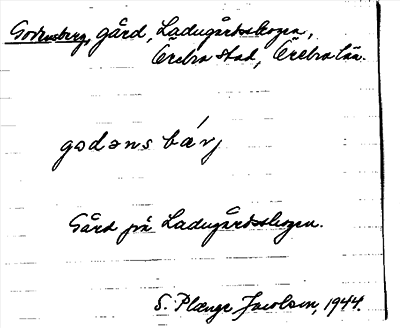 Godensberg, gård, Ladugårdsskogen,
Örebro stad, Örebro län.
godəns bárj
Gård på Ladugårdsskogen.
S. Plange Jacobson, 1944.